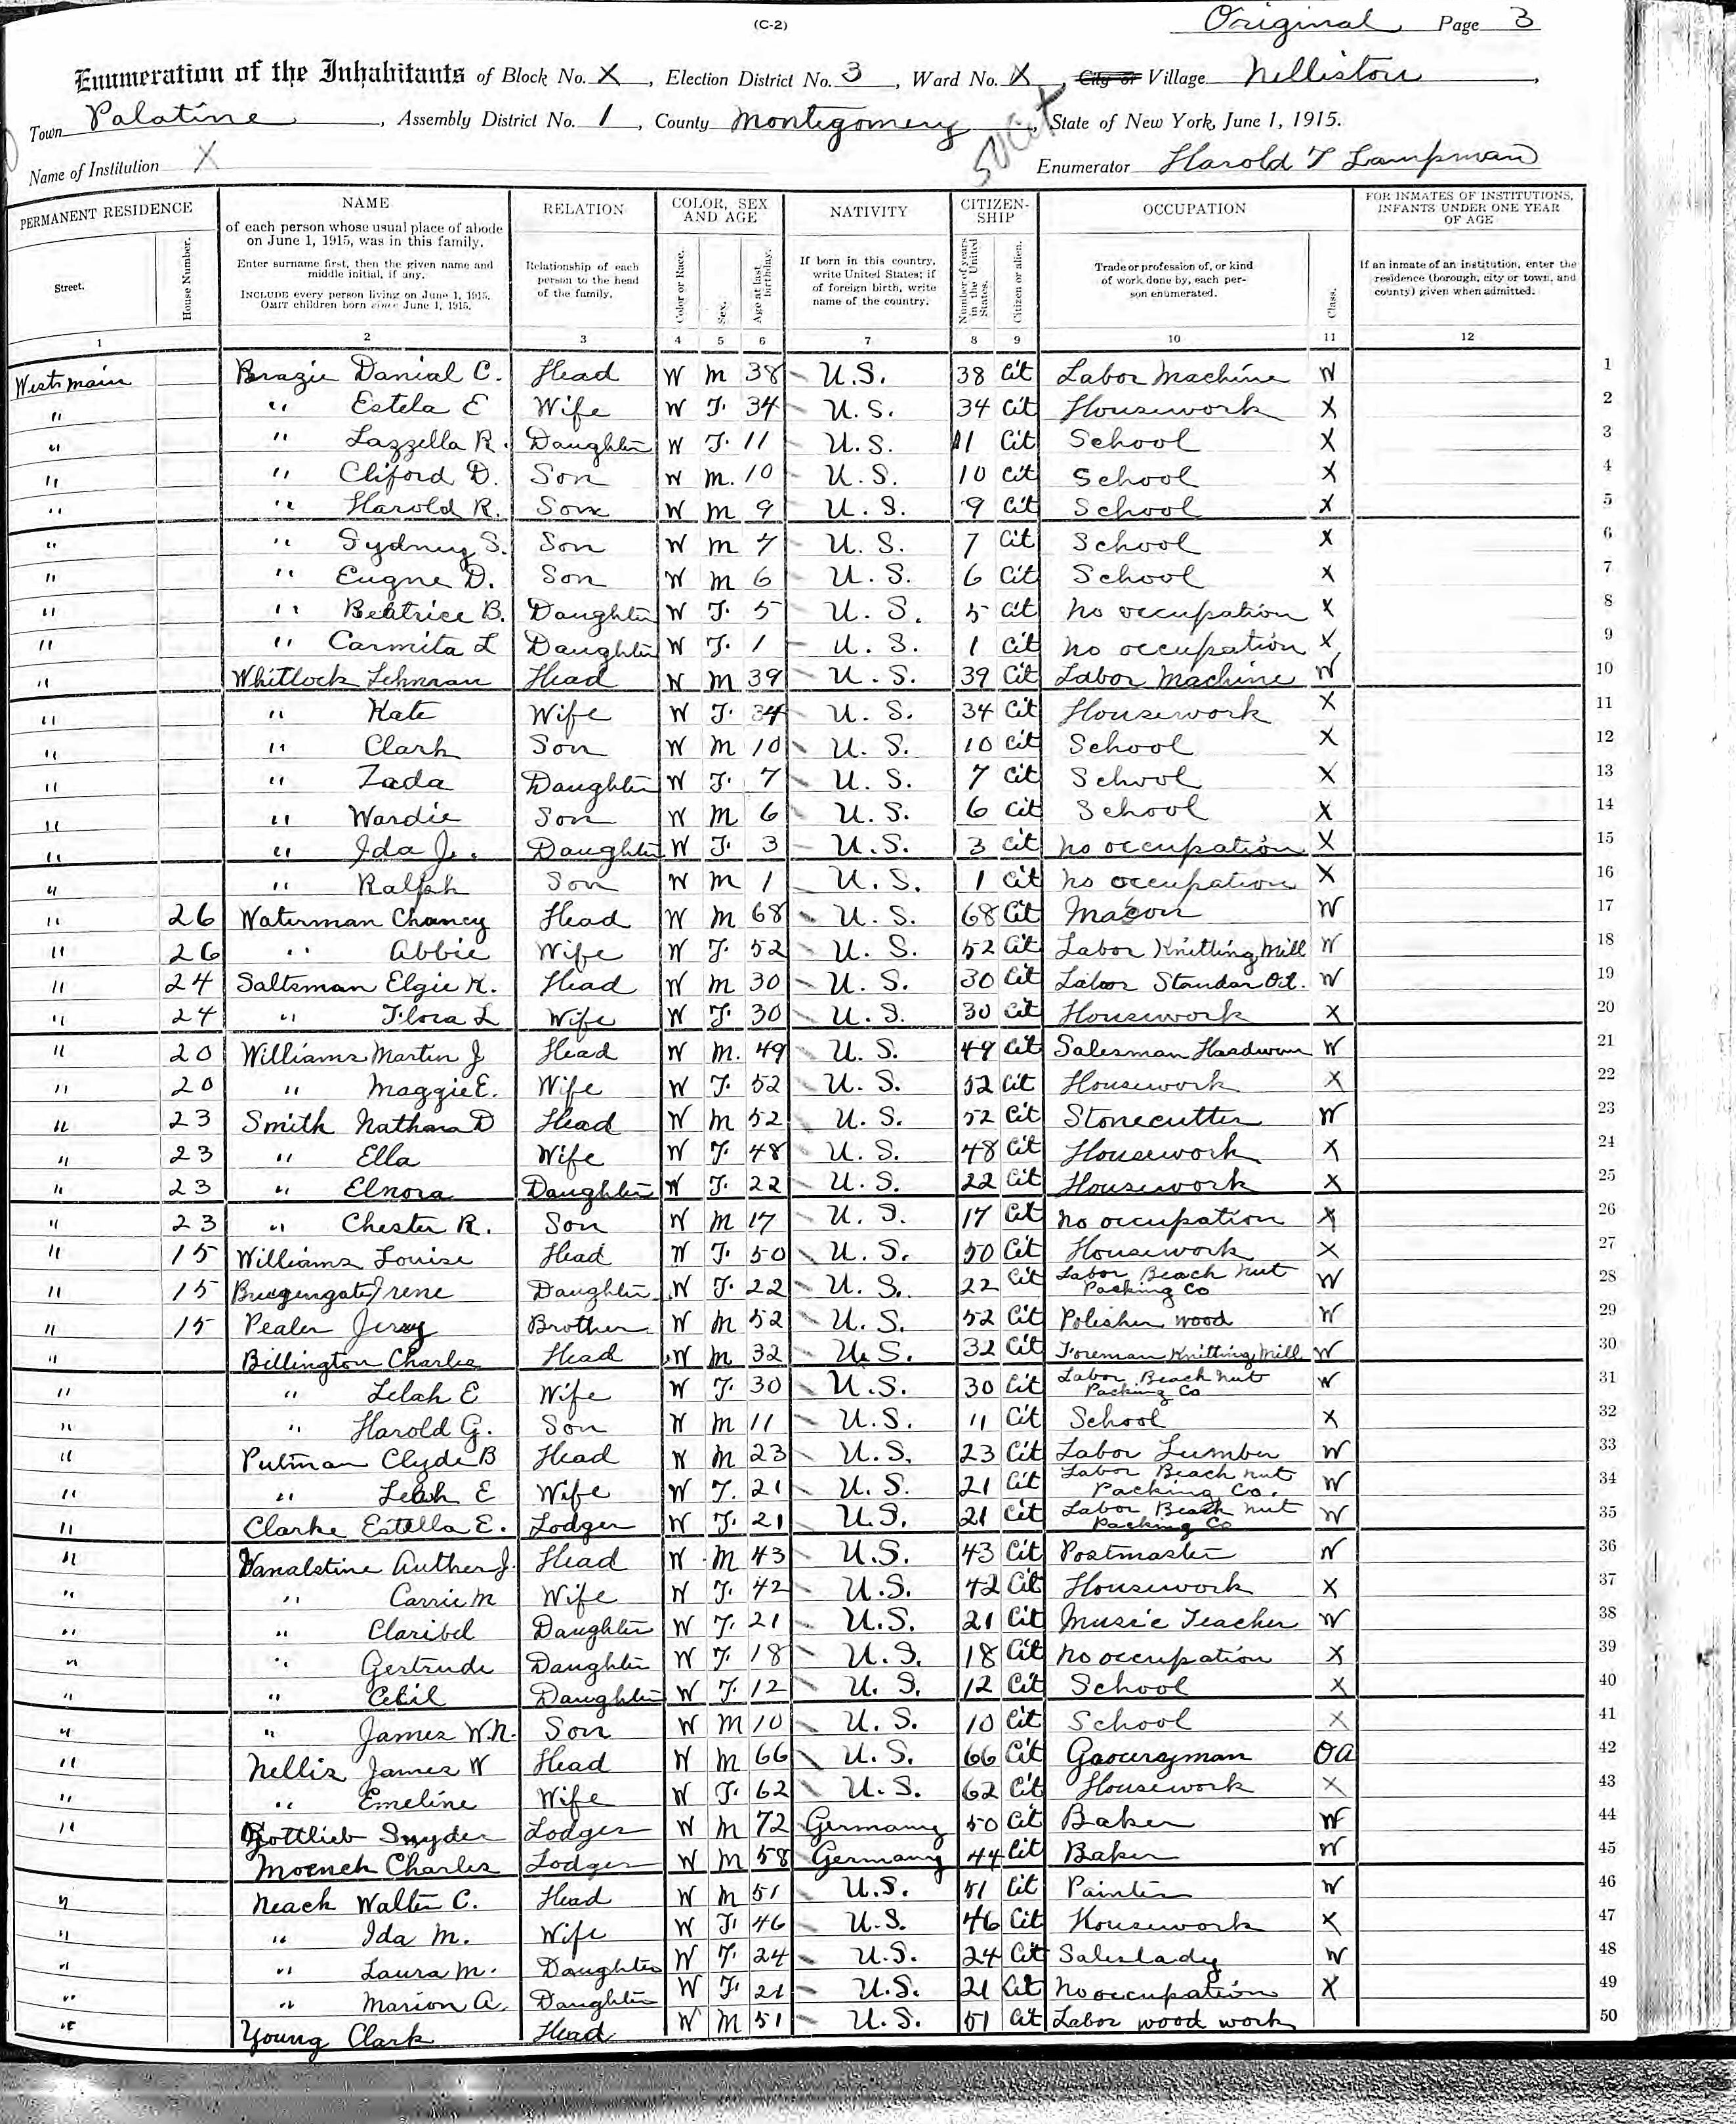 (C-2)
Original Page 3
Enumeration of the Inhabitants of Block No. X, Election District No. 3, Ward No. X, City or Village Nelliston,
Town Palatine, Assembly District No. 1, County Montgomery, State of New York, June 1, 1915.
Name of Institution X Enumerator Harold T Lampman
PERMANENT RESIDENCE
Street.
House Number.
1
NAME
of each person whose usual place of abode
on June 1, 1915, was in this family.
Enter surname first, then the given name and
middle initial, if any.
INCLUDE every person living on June 1, 1915.
OMIT children born since June 1, 1915.
2
RELATION
Relationship of each
person to the head
of the family.
3
COLOR, SEX
AND AGE
Color or Race.
4
Sex.
5
Age at last birthday.
6
NATIVITY
If born in this country,
write United States; if
of foreign birth, write
name of the country.
7
CITIZEN-
SHIP
Number of years in the United States.
8
Citizen or alien.
9
OCCUPATION
Trade or profession of, or kind
of work done by, each per-
son enumerated.
10
Class.
11
FOR INMATES OF INSTITUTIONS,
INFANTS UNDER ONE YEAR
OF AGE
If an inmate of an institution, enter the
residence (borough, city or town, and
county) given when admitted.
12
West main Brazie Danial C. Head W M 38 U.S. 38 Cit Labor Machine W 1
" " Estela E Wife W F. 34 U.S. 34 Cit Housework X 2
" " Lazzella R. Daughter W F. 11 U.S. 11 Cit School X 3
" " Cliford D. Son W M. 10 U.S. 10 Cit School X 4
" " Harold R. Son W M 9 U.S. 9 Cit School X 5
" " Sydney S. Son W M 7 U.S. 7 Cit School X 6
" " Eugne D. Son W M 6 U.S. 6 Cit School X 7
" " Beatrice B. Daughter W F. 5 U.S. 5 Cit no occupation X 8
" " Carmita L Daughter W F. 1 U.S. 1 Cit no occupation X 9
" Whitlock Lehman Head W M 39 U.S. 39 Cit Labor Machine W 10
" " Kate Wife W F. 34 U.S. 34 Cit Housework X 11
" " Clark Son W M 10 U.S. 10 Cit School X 12
" " Zada Daughter W F. 7 U.S. 7 Cit School X 13
" " Wardie Son W M 6 U.S. 6 Cit School X 14
" " Ida J. Daughter W F. 3 U.S. 3 Cit no occupation X 15
" " Ralph Son W M 1 U.S. 1 Cit no occupation X 16
" 26 Waterman Chancy Head W M 68 U.S. 68 Cit Mason W 17
" 26 " Abbie Wife W F. 52 U.S. 52 Cit Labor Knitting Mill W 18
" 24 Saltsman Elgie K. Head W M 30 U.S. 30 Cit Labor Standar Oil. W 19
" 24 " Flora L Wife W F. 30 U.S. 30 Cit Housework X 20
" 20 Williams Martin J Head W M. 49 U.S. 49 Cit Salesman Hardware W 21
" 20 " Maggie E. Wife W F. 52 U.S. 52 Cit Housework X 22
" 23 Smith Nathan D Head W M 52 U.S. 52 Cit Stonecutter W 23
" 23 " Ella Wife W F. 48 U.S. 48 Cit Housework X 24
" 23 " Elnora Daughter W F. 22 U.S. 22 Cit Housework X 25
" 23 " Chester R. Son W M 17 U.S. 17 Cit no occupation X 26
" 15 Williams Louise Head W F. 50 U.S. 50 Cit Housework X 27
" 15 Irene Daughter W F. 22 U.S. 22 Cit Labor Beach nut Packing Co W 28
" 15 Pealer Jerry Brother W M 52 U.S. 52 Cit Polisher wood W 29
" Billington Charlie Head W M 32 U.S. 32 Cit Foreman Knitting Mill W 30
" " Lelah E Wife W F. 30 U.S. 30 Cit Labor Beach nut Packing Co W 31
" " Harold G. Son W M 11 U.S. 11 Cit School X 32
" Putman Clyde B Head W M 23 U.S. 23 Cit Labor Lumber W 33
" " Leah E Wife W F. 21 U.S. 21 Cit Labor Beach nut Packing Co. W 34
" Clarke Estella E. Lodger W F. 21 U.S. 21 Cit Labor Beach nut Packing Co W 35
" Vanalstine Auther J. Head W M 43 U.S. 43 Cit Postmaster W 36
" " Carrie M Wife W F. 42 U.S. 42 Cit Housework X 37
" " Claribel Daughter W F. 21 U.S. 21 Cit Music Teacher W 38
" " Gertrude Daughter W F. 18 U.S. 18 Cit no occupation X 39
" " Cecil Daughter W F. 12 U.S. 12 Cit School X 40
" " James W.N. Son W M 10 U.S. 10 Cit School X 41
" Nellis James W Head W M 66 U.S. 66 Cit Groceryman OA 42
" " Emeline Wife W F. 62 U.S. 62 Cit Housework X 43
" Gottlieb Snyder Lodger W M 72 Germany 50 Cit Baker W 44
Moench Charles Lodger W M 58 Germany 44 Cit Baker W 45
" Neack Walter C. Head W M 51 U.S. 51 Cit Painter W 46
" " Ida M. Wife W F. 46 U.S. 46 Cit Housework X 47
" " Laura M. Daughter W F. 24 U.S. 24 Cit Saleslady W 48
" " Marion A. Daughter W F. 21 U.S. 21 Cit No occupation X 49
" Young Clark Head W M 51 U.S. 51 Cit Labor wood work 50